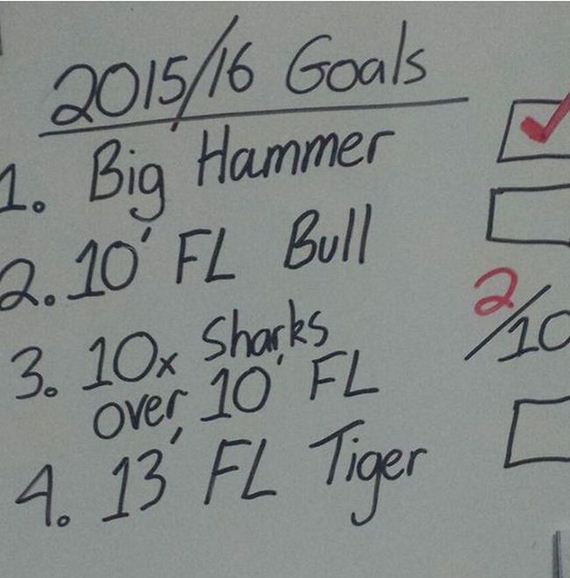 2015/16 Goals
1. Big Hammer
2. 10' FL Bull
3. 10x Sharks
over 10' FL
2/10
4. 13' FL Tiger